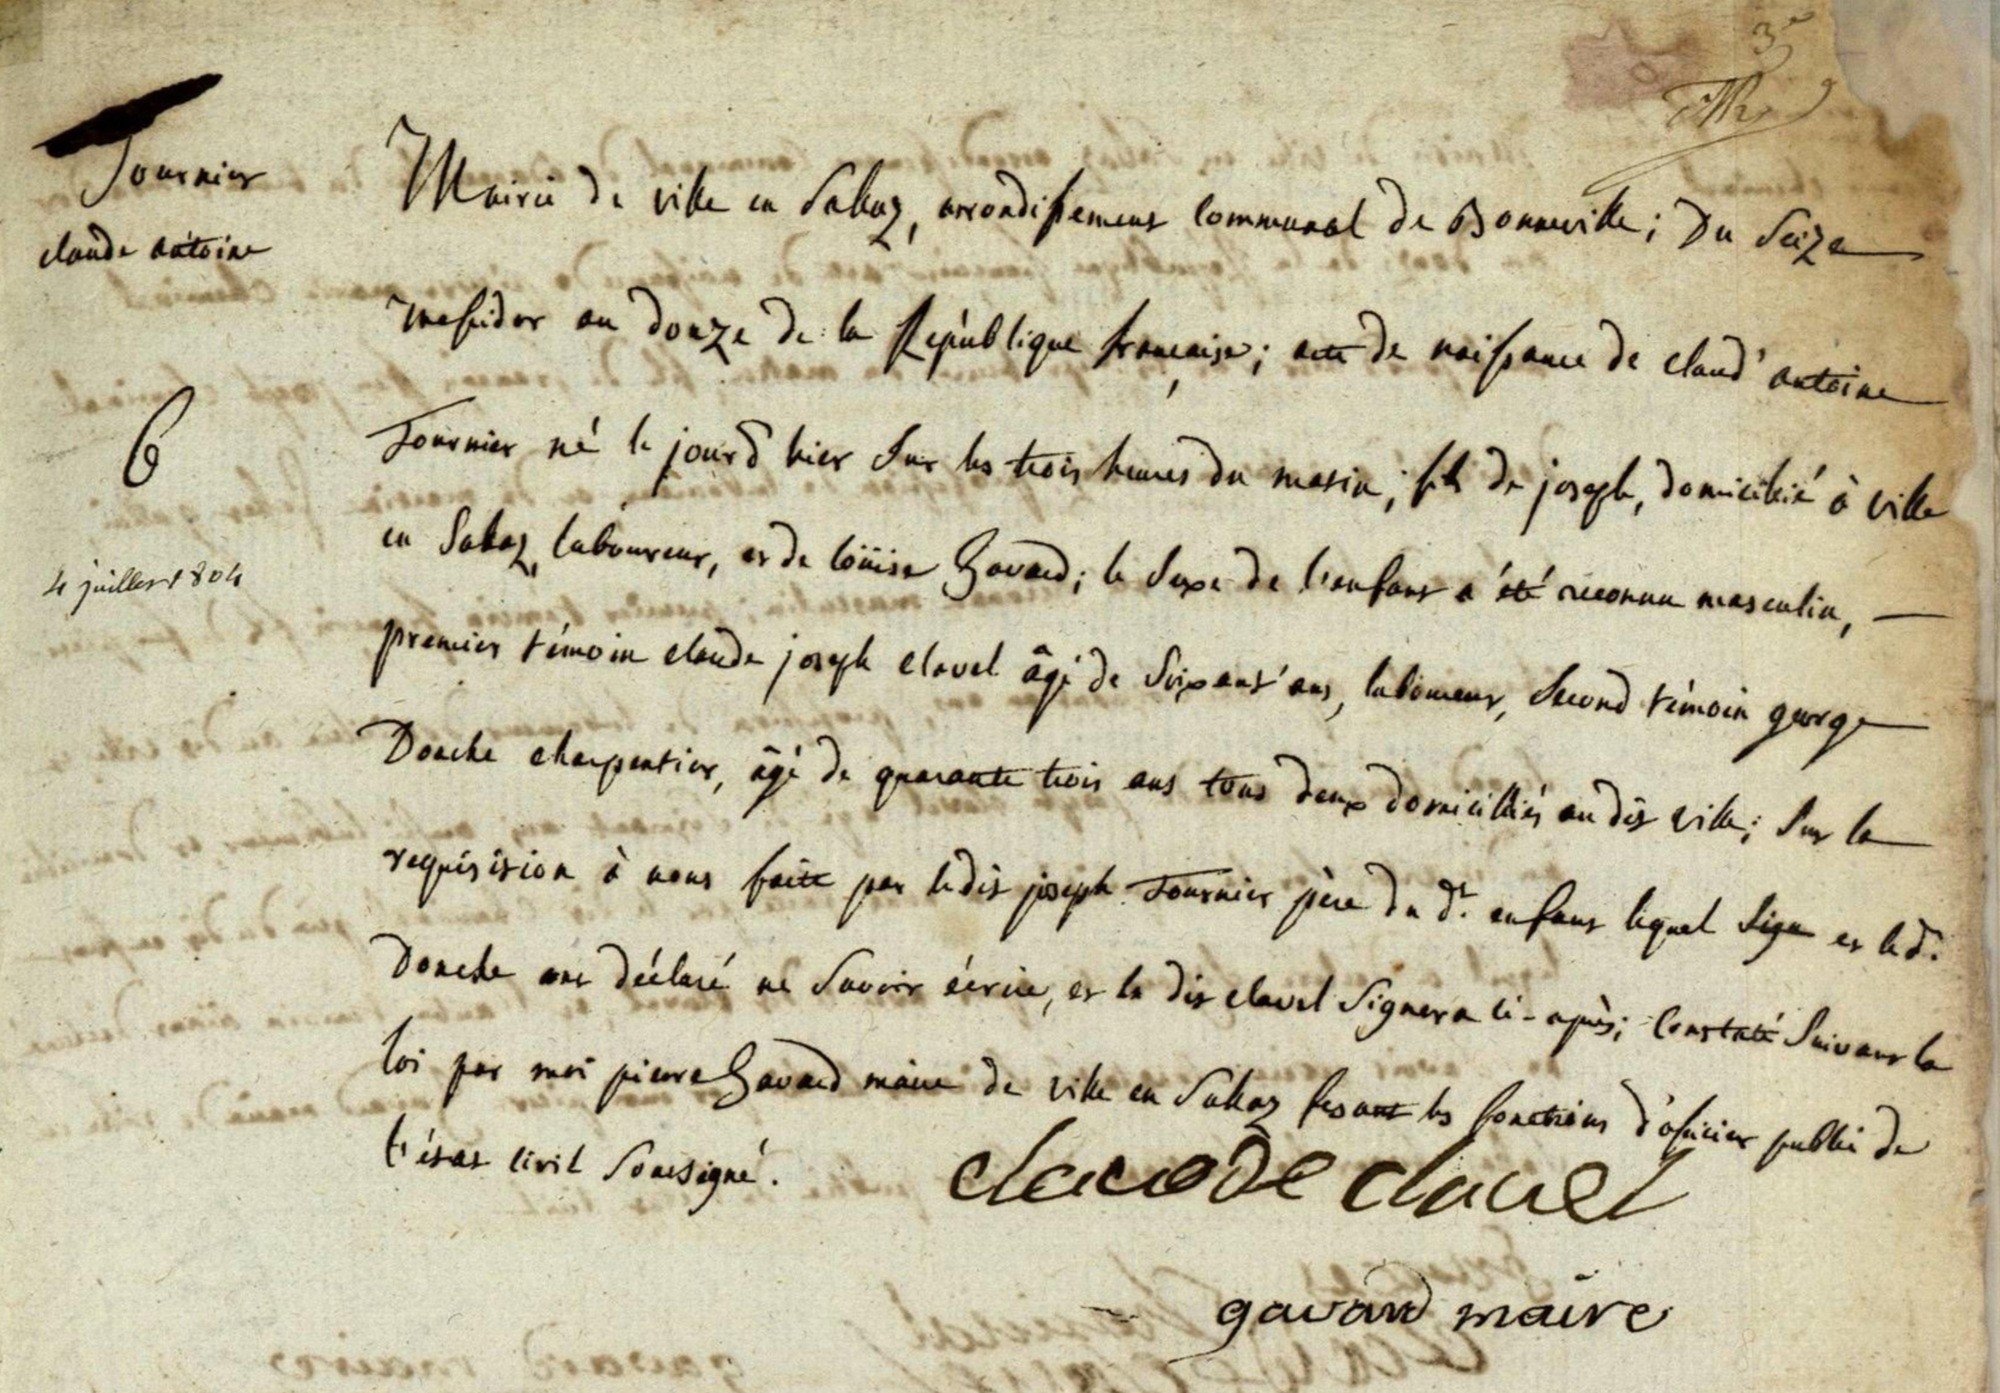 3e
Fournier
claude antoine
6
4 juillet 1804
Mairie de ville en Sallaz, arrondissement Communal de Bonneville; Du Seize
messidor an douze de la République française; acte de naissance de claud' antoine
Fournier né le jourd hier Sur les trois heures du matin; fils de joseph, domicilié à ville
en Sallaz, laboureur, et de loüise Gavard; le Sexe de l'enfant a été reconnu masculin,
premier témoin claude joseph clavel âgé de Soixant' ans, laboureur, Second témoin george
Donche charpentier, âgé de quarante trois ans tous deux domicilliés au dit ville; Sur la
requisition à nous faite par ledit joseph Fournier père du dt. enfant lequel et led.
Donche ont déclaré ne Savoir écrire, et le dit clavel Signera ci-après; Constaté Suivant la
loi par moi pierre Gavard maire de ville en Sallaz fesant les fonctions d'oficier public de
l'état civil Soussigné.
claude clavel
gavard maire